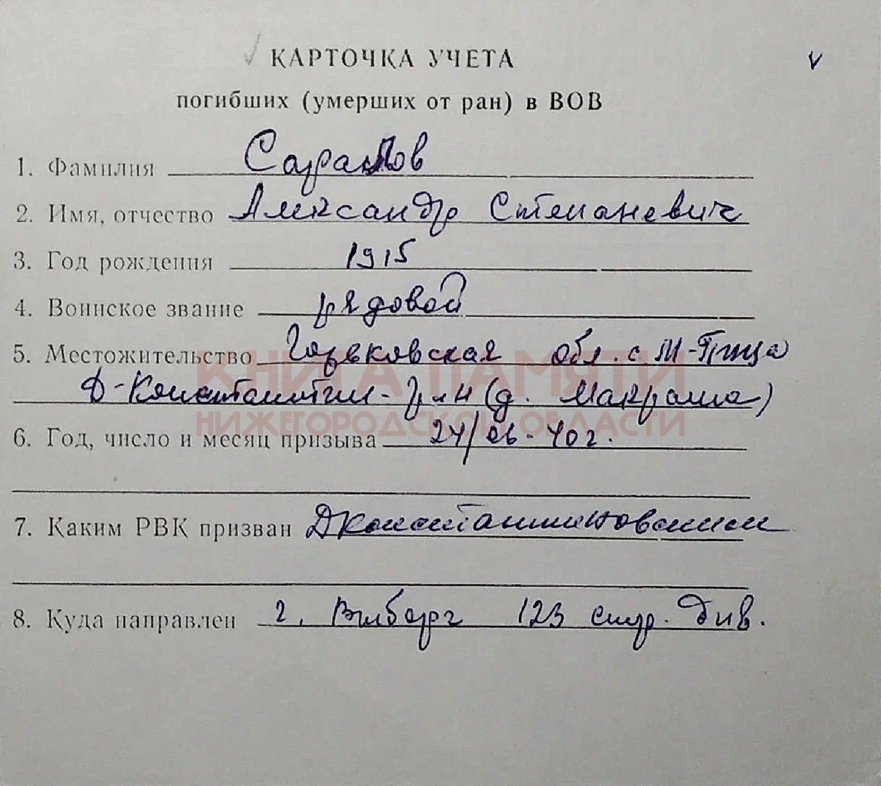 КАРТОЧКА УЧЕТА
погибших (умерших от ран) в ВОВ
1. Фамилия
2. Имя, отчество Александр Степаневич
3. Год рождения 1915
4. Воинское звание рядовой
5. Местожительство Горьковская обл. с. М-Пица
Д-Константин- р-н (д. Макраша)
КНИГА ПАМЯТИ
НИЖЕГОРОДСКОЙ ОБЛАСТИ
6. Год, число и месяц призыва 24/06-40г.
7. Каким РВК призван ДКонстантиновским
8. Куда направлен г. Выборг 123 стр. див.